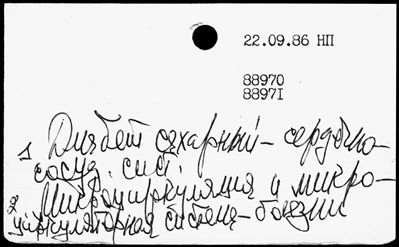 22.09.86 НП
88970
88971
1 Диабет сахарный - сердечно-
сосуд. сист.
2 Микроциркуляция и микро-
циркуляторная система - болезни